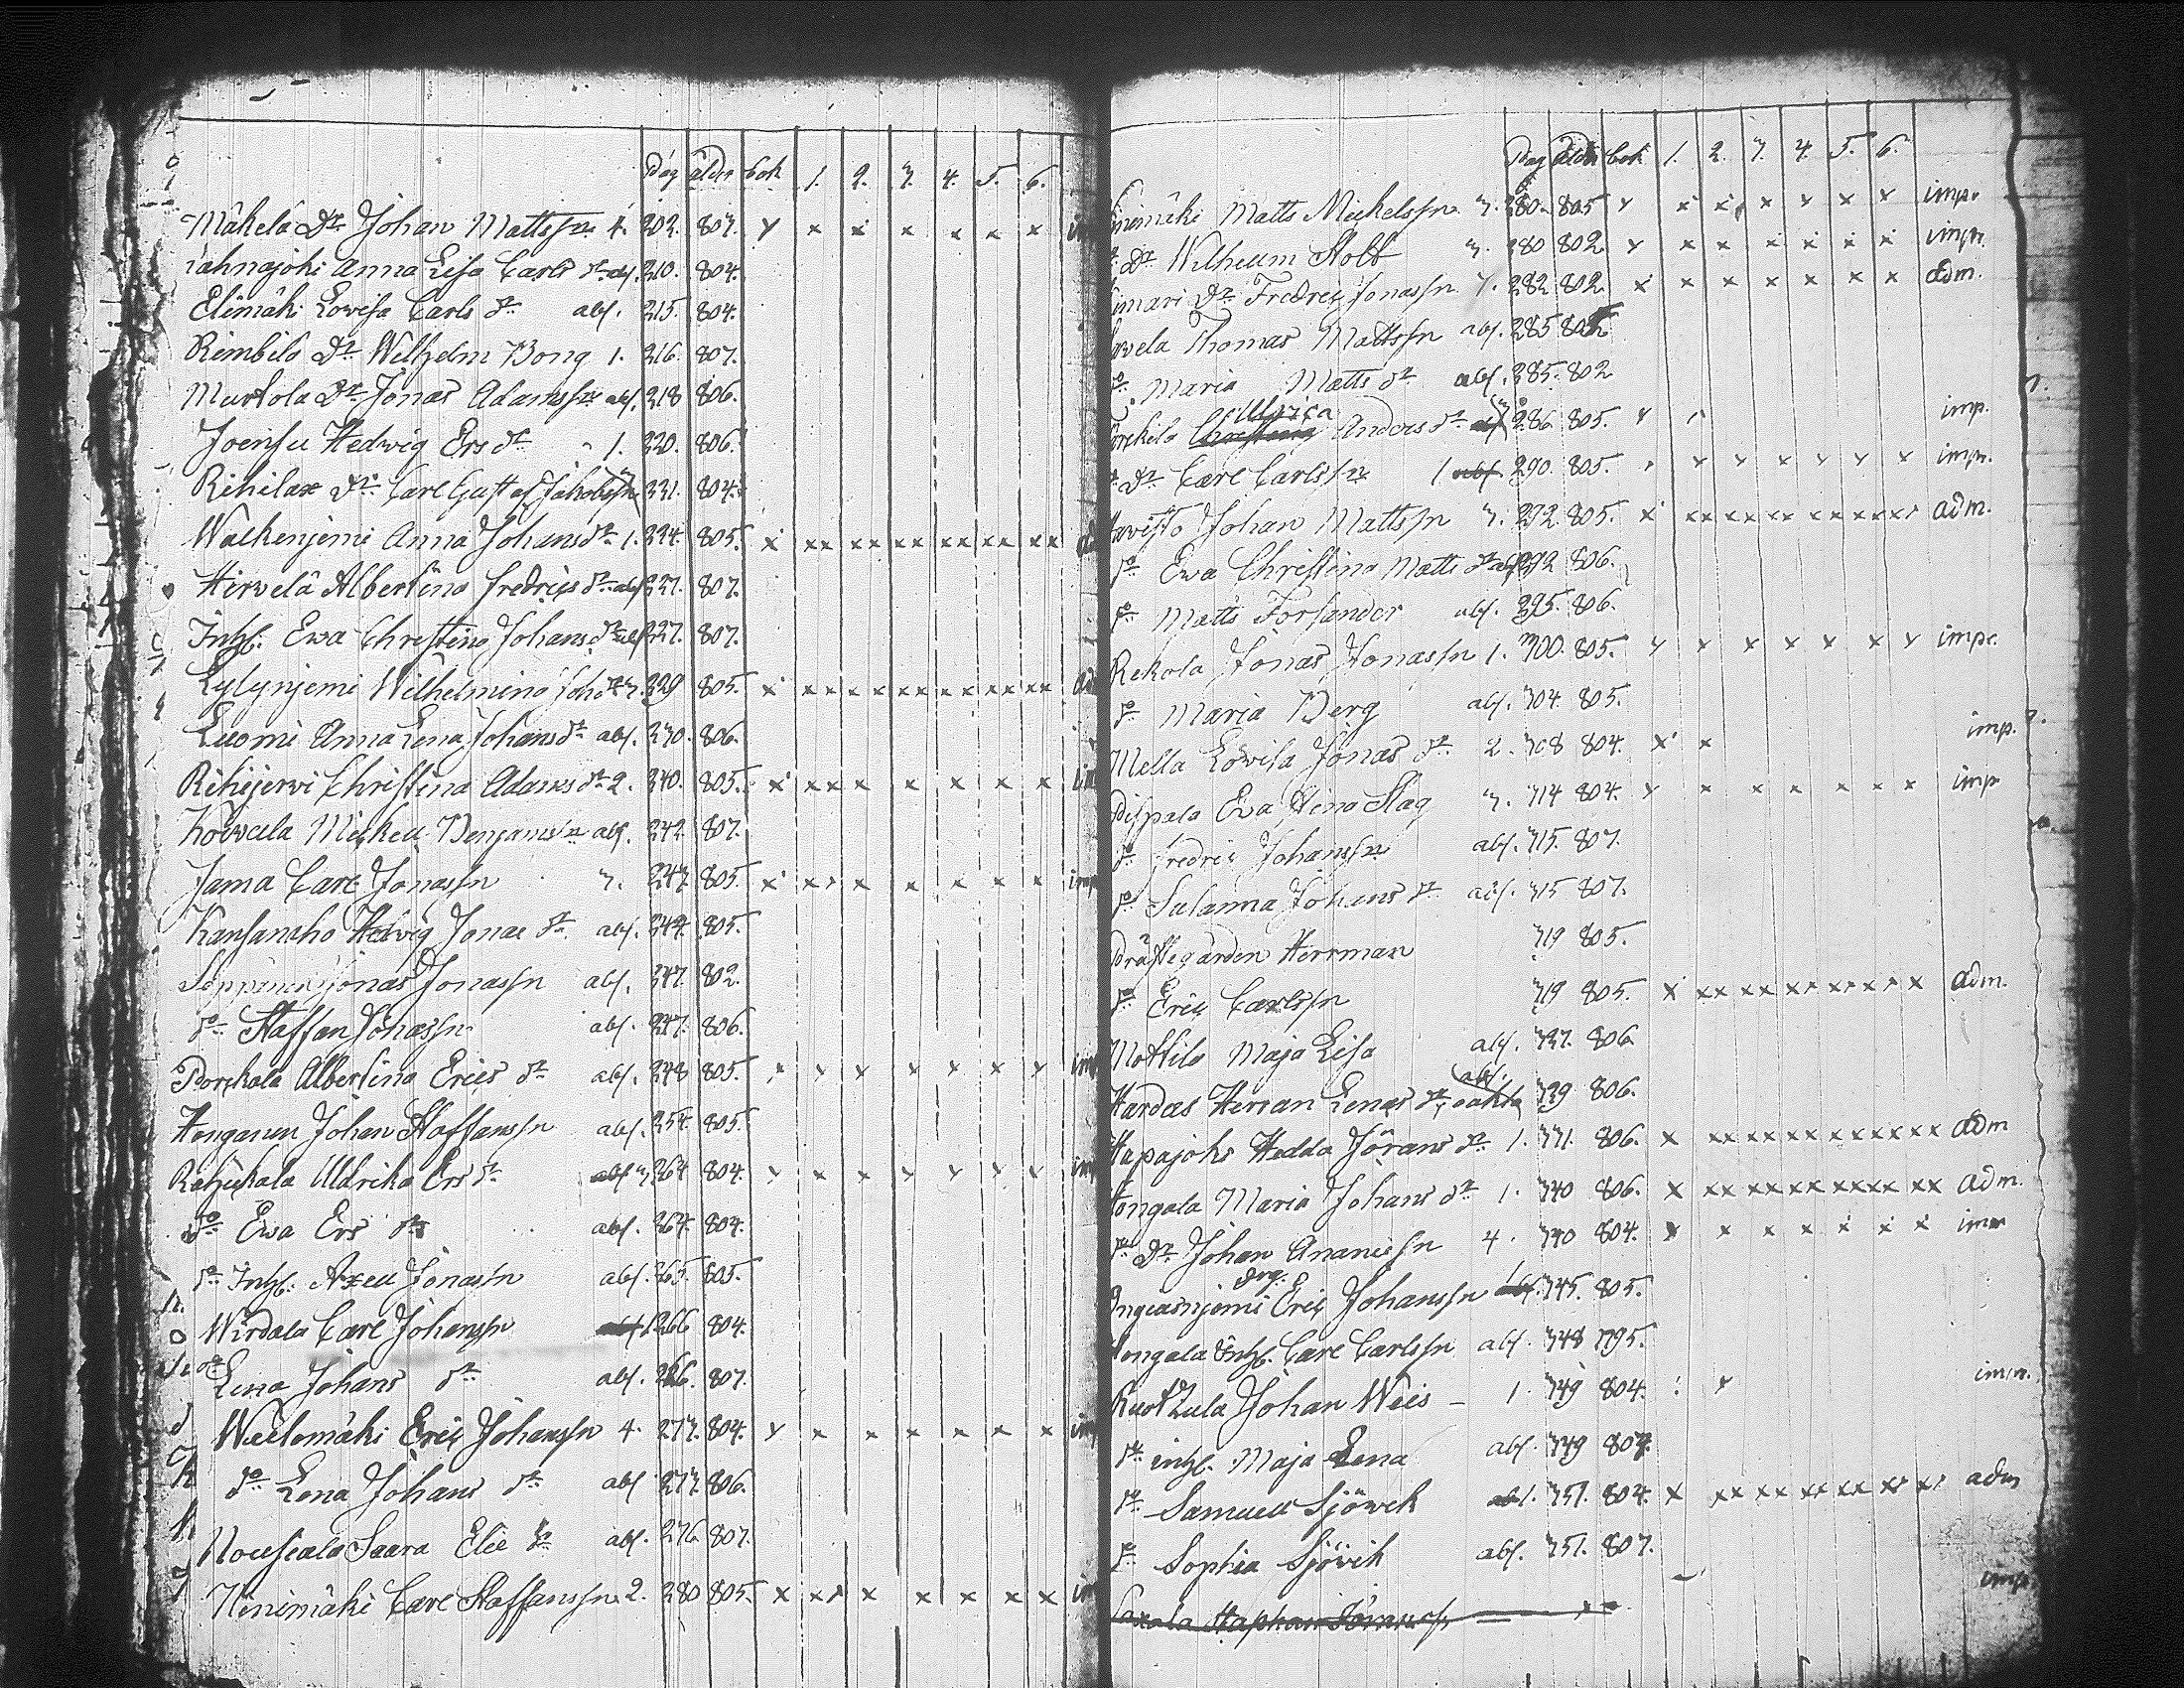 Pag ålder bok 1. 2. 3. 4. 5. 6.
Mäkelä Dr Johan Mattssn 4. 202. 803. x x x x x x x
Anna Lisa Carls dr abs. 210. 804.
Elimäki Lovisa Carls dr abs. 215. 804.
Rembilä Dr Wilhelm Bong 1. 216. 803.
Murtola Dr Jonas Adamssn abs. 218 806.
Joensu Hedwig Ers dr 1. 220. 806.
Rihilax Dr Carl Gustaf Jakobssn 221. 804.
Walkenjemi Anna Johans dr 1. 224. 805. x xx xx xx xx xx xx
Hirvelä Albertina Fredrics dr abs 227. 807.
Inh. Ewa Christina Johans dr abs 227. 807.
Lylynjemi Wilhelmina Joh dr 3. 229 805. x xx xx xx xx xx xx
Luomi Anna Lena Johans dr abs. 230. 806.
Rihijerwi Christina Adams dr 2. 240. 805. x xx x x x x x
Kowala Mickell Benjamssn abs. 242. 807.
Jama Carl Jonassn 3. 243. 805. x xx x x x x x imp
Kansanaho Hedvig Jonae dr abs. 244. 805.
Seppinen Jonas Jonassn abs. 247. 802.
do Staffan Jonassn abs. 247. 806.
Porckala Albertina Erics dr abs. 248 805. x x x x x x x imp
Honganen Johan Staffanssn abs. 254. 805.
Rahikala Uldrika Ers dr abs 3. 264 804. x x x x x x x imp
do Ewa Ers dr abs. 264. 804.
do Inh. Axell Jonassn abs. 265. 805.
Wirdala Carl Johanssn abs 1 266 804.
do Lena Johans dr abs. 266. 807.
Waelomäki Eric Johanssn 4. 273. 804. x x x x x x x imp
do Lena Johans dr abs 273. 806.
Nousiala Saara Elie dr abs. 276 807.
Ninimäki Carl Staffanssn 2. 280 805. x xx x x x x x
Pag ålder bok 1. 2. 3. 4. 5. 6.
Matts Mickelssn 3. 280. 805 x x x x x x x impr
Dr Wilhelm Stolt 3. 280 802 x x x x x x x impr.
Dr Fredric Jonassn 3. 282 802 x x x x x x x adm.
Thomas Mattssn abs. 285 802
do Maria Matts dr abs. 285. 802
Ulrica
Christina Anders dr abs 286. 805. x imp.
Dr Carl Carlssn 1 abs. 290. 805. x x x x x x impr.
Johan Mattssn 3. 292. 805. x xx xx xx xx xx xx adm.
do Ewa Christina Matts dr abs 292 806.
do Matts Forsander abs. 295. 806.
Rekola Jonas Jonassn 1. 300. 805. x x x x x x x impr.
do Maria Berg abs. 304. 805.
Mella Lovisa Jonas dr 2. 308 804. x x imp.
Pispala Ewa Stina Stag 3. 314 804. x x x x x x x imp
do Fredric Johanssn abs. 315. 807.
do Susanna Johans dr abs. 315 807.
Prästegården Herrman 319 805.
do Eric Carlssn 319 805. x xx xx xx xx xx x adm.
Mattila Maja Lisa abs. 337. 806.
abs.
Hardas Herran Lenas dr 339 806.
Hapajoki Hedda Jörans dr 1. 331. 806. x xx xx xx xx xx xx adm
Hongala Maria Johans dr 1. 340 806. x xx xx xx xx xx xx adm.
do Dr Johan Ananiessn 4. 340 804. x x x x x x x imp
drg.
Eric Johanssn abs 345. 805.
Hongala Inh. Carl Carlssn abs. 348 795.
Johan Weis 1. 349 804. x impr.
do inh. Maja Lena abs. 349 807.
do Samuell Sjöwik abs 1. 351. 804. x xx xx xx xx xx xx adm
do Sophia Sjövik abs. 351. 807.
imp.